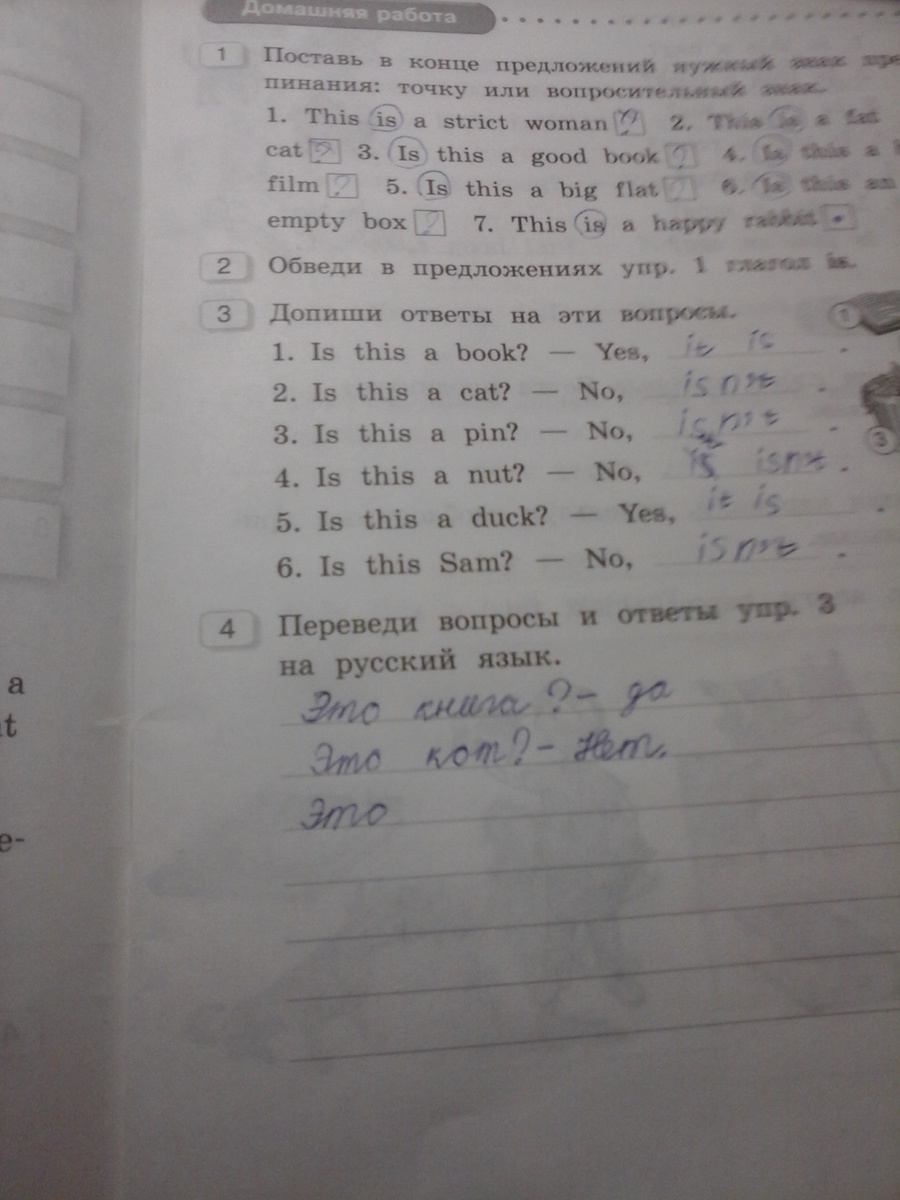 Домашняя работа
1 Поставь в конце предложений нужный знак пре-
пинания: точку или вопросительный знак.
1. This is a strict woman ? 2. This is a fat
cat ? 3. Is this a good book ? 4. Is this a
film ? 5. Is this a big flat ? 6. Is this an
empty box ? 7. This is a happy rabbit .
2 Обведи в предложениях упр. 1 глагол is.
3 Допиши ответы на эти вопросы. 1
1. Is this a book? — Yes, it is .
2. Is this a cat? — No, is not .
3. Is this a pin? — No, is not . 3
4. Is this a nut? — No, is isnt .
5. Is this a duck? — Yes, it is .
6. Is this Sam? — No, is not .
4 Переведи вопросы и ответы упр. 3
на русский язык.
a
Это книга ? – да
Это кот? – Нет.
Это
е-